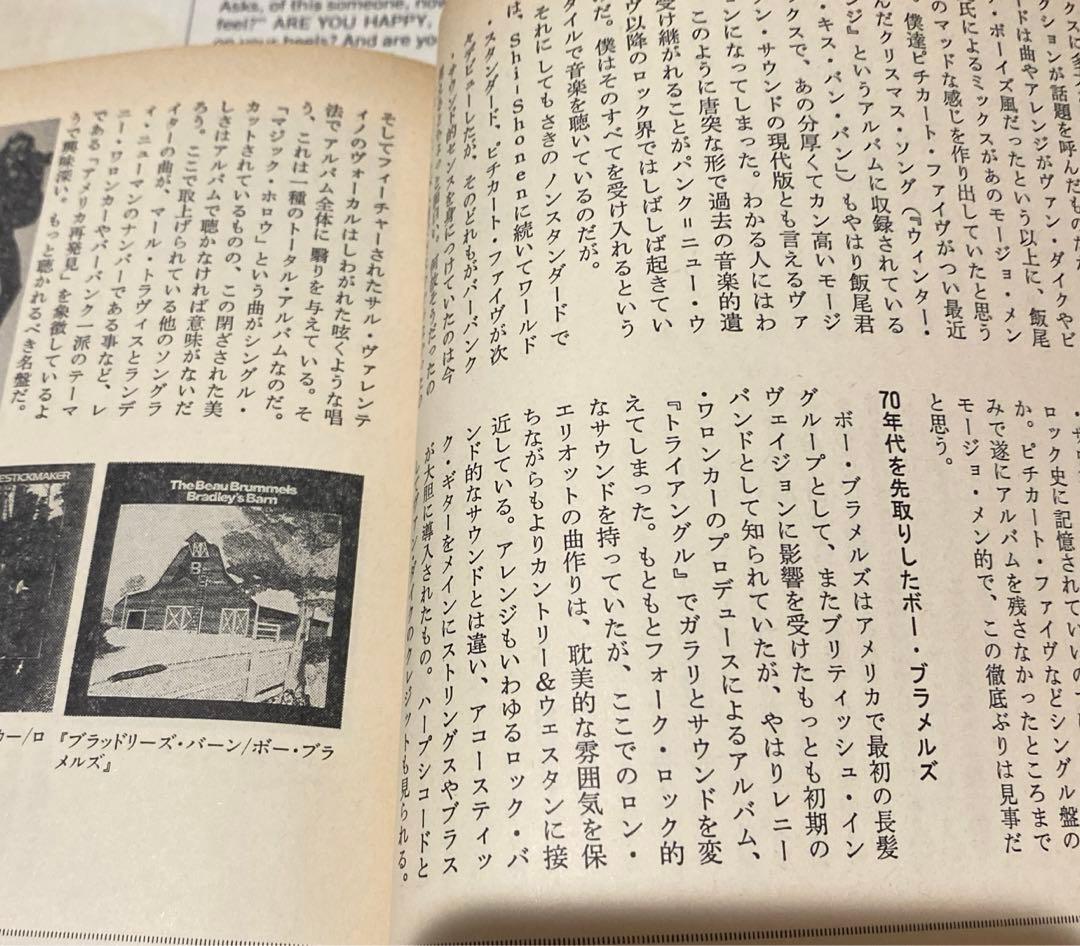 Asks, of this someone, now
feel?" ARE YOU HAPPY,
on your heels? And are yo
クスに多
クションが話題を呼んだものだが
ードは曲やアレンジがヴァン・ダイクやビ
・ボーイズ風だったという以上に、飯尾
氏によるミックスがあのモージョ・メン
のマッドな感じを作り出していたと思う
。僕達ピチカート・ファイヴがつい最近
んだクリスマス・ソング（『ウィンター・
ンジ』というアルバムに収録されている
・キス・バン・バン』）もやはり飯尾君
ックスで、あの分厚くてカン高いモージ
ン・サウンドの現代版とも言えるヴァ
ョンになってしまった。わかる人にはわ
このように唐突な形で過去の音楽的遺
受け継がれることがパンク＝ニュー・ウ
ヴ以降のロック界ではしばしば起きてい
だ。僕はそのすべてを受け入れるという
タイルで音楽を聴いているのだが。
それにしてもさきのノンスタンダードで
は、Shi-Shonenに続いてワールド
・スタンダード、ピチカート・ファイヴが次
々デビューしたが、そのどれもがバーバンク
・サウンド的センスを身につけていたのは今
ロック史に記憶されていいの
か。ピチカート・ファイヴなどシングル盤の
みで遂にアルバムを残さなかったところまで
モージョ・メン的で、この徹底ぶりは見事だ
と思う。
70年代を先取りしたボー・ブラメルズ
ボー・ブラメルズはアメリカで最初の長髪
グループとして、またブリティッシュ・イン
ヴェイジョンに影響を受けたもっとも初期の
バンドとして知られていたが、やはりレニー
・ワロンカーのプロデュースによるアルバム、
『トライアングル』でガラリとサウンドを変
えてしまった。もともとフォーク・ロック的
なサウンドを持っていたが、ここでのロン・
エリオットの曲作りは、耽美的な雰囲気を保
ちながらもよりカントリー＆ウェスタンに接
近している。アレンジもいわゆるロック・バ
ンド的なサウンドとは違い、アコースティッ
ク・ギターをメインにストリングスやブラス
が大胆に導入されたもの。ハープシコードと
のクレジットも見られる。
そしてフィーチャーされたサル・ヴァレンテ
ィノのヴォーカルはしわがれた呟くような唱
法でアルバム全体に翳りを与えている。そ
う、これは一種のトータル・アルバムなのだ。
「マジック・ホロウ」という曲がシングル・
カットされているものの、この閉ざされた美
しさはアルバムで聴かなければ意味がないだ
ろう。ここで取上げられている他のソングラ
イターの曲が、マール・トラヴィスとランデ
ィ・ニューマンのナンバーである事など、レ
ニー・ワロンカーやバーバンク一派のテーマ
である「アメリカ再発見」を象徴しているよ
うで興味深い。もっと聴かれるべき名盤だ。
ESTICKMAKER
The Beau Brummels
Bradley's Barn
カー/ロ
『ブラッドリーズ・バーン/ボー・ブラ
メルズ』